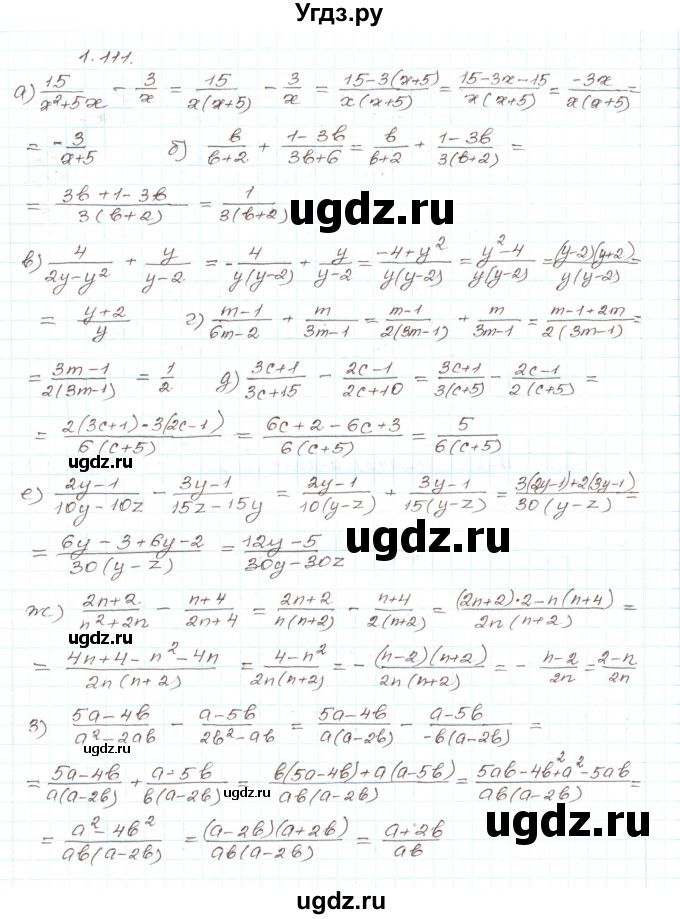 Угдз.ру
1.111.
а) 15/(x²+5x) - 3/x = 15/(x(x+5)) - 3/x = (15-3(x+5))/(x(x+5)) = (15-3x-15)/(x(x+5)) = -3x/(x(x+5)) =
= -3/(x+5) б) в/(в+2) + (1-3в)/(3в+6) = в/(в+2) + (1-3в)/(3(в+2)) =
= (3в+1-3в)/(3(в+2)) = 1/(3(в+2))
ugdz.ru
ugdz.ru
в) 4/(2y-y²) + y/(y-2) = -4/(y(y-2)) + y/(y-2) = (-4+y²)/(y(y-2)) = (y²-4)/(y(y-2)) = ((y-2)(y+2))/(y(y-2)) =
= (y+2)/y г) (m-1)/(6m-2) + m/(3m-1) = (m-1)/(2(3m-1)) + m/(3m-1) = (m-1+2m)/(2(3m-1)) =
= (3m-1)/(2(3m-1)) = 1/2 д) (3c+1)/(3c+15) - (2c-1)/(2c+10) = (3c+1)/(3(c+5)) - (2c-1)/(2(c+5)) =
= (2(3c+1)-3(2c-1))/(6(c+5)) = (6c+2-6c+3)/(6(c+5)) = 5/(6(c+5))
ugdz.ru
ugdz.ru
е) (2y-1)/(10y-10z) - (3y-1)/(15z-15y) = (2y-1)/(10(y-z)) + (3y-1)/(15(y-z)) = (3(2y-1)+2(3y-1))/(30(y-z)) =
= (6y-3+6y-2)/(30(y-z)) = (12y-5)/(30y-30z)
ugdz.ru
ж) (2n+2)/(n²+2n) - (n+4)/(2n+4) = (2n+2)/(n(n+2)) - (n+4)/(2(n+2)) = ((2n+2)·2-n(n+4))/(2n(n+2)) =
= (4n+4-n²-4n)/(2n(n+2)) = (4-n²)/(2n(n+2)) = -((n-2)(n+2))/(2n(n+2)) = -(n-2)/2n = (2-n)/2n
з) (5a-4в)/(a²-2aв) - (a-5в)/(2в²-aв) = (5a-4в)/(a(a-2в)) - (a-5в)/(-в(a-2в)) =
ugdz.ru
= (5a-4в)/(a(a-2в)) + (a-5в)/(в(a-2в)) = (в(5a-4в)+a(a-5в))/(aв(a-2в)) = (5aв-4в²+a²-5aв)/(aв(a-2в)) =
ugdz.ru
ugdz.ru
= (a²-4в²)/(aв(a-2в)) = ((a-2в)(a+2в))/(aв(a-2в)) = (a+2в)/aв
ugdz.ru